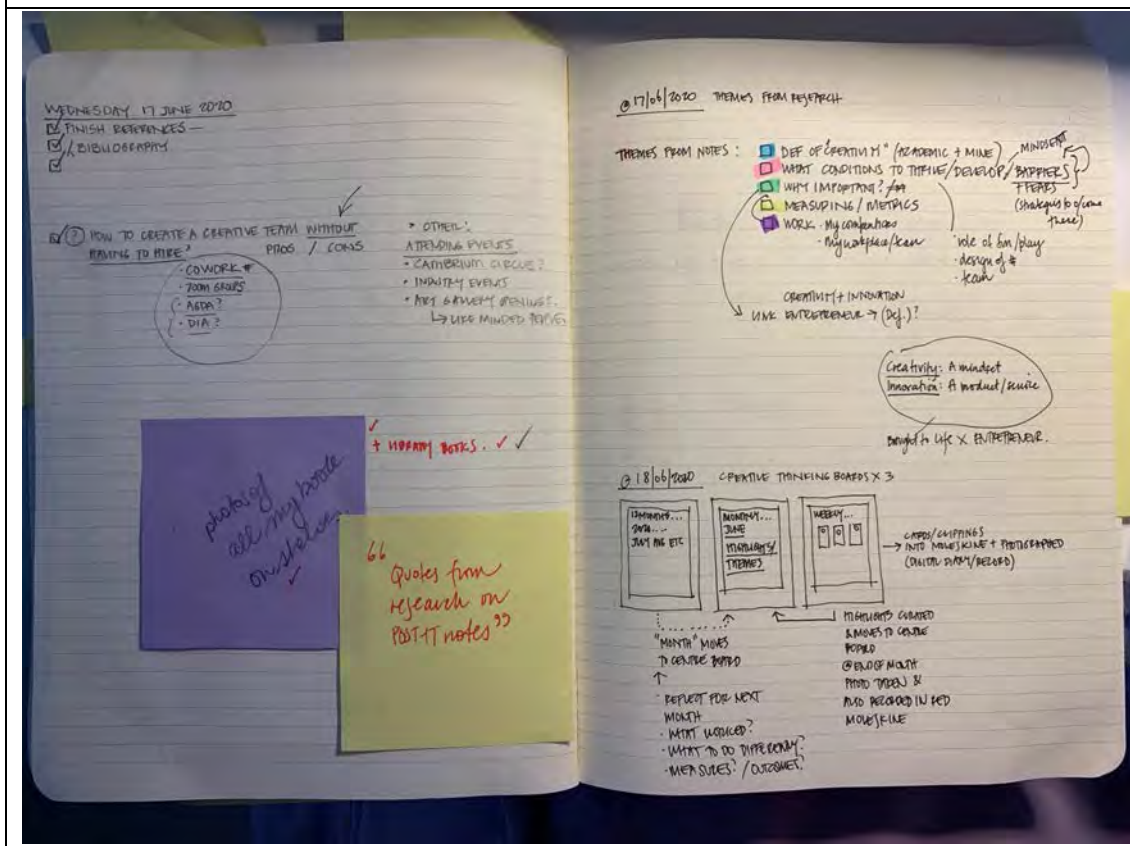 WEDNESDAY 17 JUNE 2020
FINISH REFERENCES —
/ BIBLIOGRAPHY
? HOW TO CREATE A CREATIVE TEAM WITHOUT
HAVING TO HIRE?
PROS / CONS
• COWORK #
• ZOOM GROUPS
• AGDA?
• DIA?
• OTHER:
ATTENDING EVENTS
• CAMBRIUM CIRCLE?
• INDUSTRY EVENTS
• ART GALLERY OPENINGS.
↳ LIKE MINDED PEOPLE
+ LIBRARY BOOKS.
photos of
all my books
on shelves
“Quotes from
research on
POST-IT notes”
@ 17/06/2020 THEMES FROM RESEARCH
THEMES FROM NOTES:
DEF OF "CREATIVITY" (ACADEMIC + MINE)
WHAT CONDITIONS TO THRIVE/DEVELOP/
WHY IMPORTANT?
MEASURING / METRICS
WORK • My competitions
• My workplace/team
MINDSET
BARRIERS
+ FEARS
(strategies to o/come
these)
• role of fun/play
• design of #
• team
CREATIVITY + INNOVATION
LINK ENTREPRENEUR → (Def.)?
Creativity: A mindset
Innovation: A product/service
Brought to life X ENTREPRENEUR.
@ 18/06/2020 CREATIVE THINKING BOARDS X 3
12 MONTHS...
2020....
JULY AUG ETC
MONTHLY...
JUNE
HIGHLIGHTS/
THEMES
WEEKLY...
→ CARDS/CLIPPINGS
INTO MOLESKINE + PHOTOGRAPHED
(DIGITAL DIARY/RECORD)
"MONTH" MOVES
TO CENTRE BOARD
↑
• REFLECT FOR NEXT
MONTH
• WHAT WORKED?
• WHAT TO DO DIFFERENTLY?
• MEASURES? / OUTCOMES?
HIGHLIGHTS CURATED
& MOVES TO CENTRE
BOARD
@ END OF MONTH
PHOTO TAKEN &
ALSO RECORDED IN RED
MOLESKINE